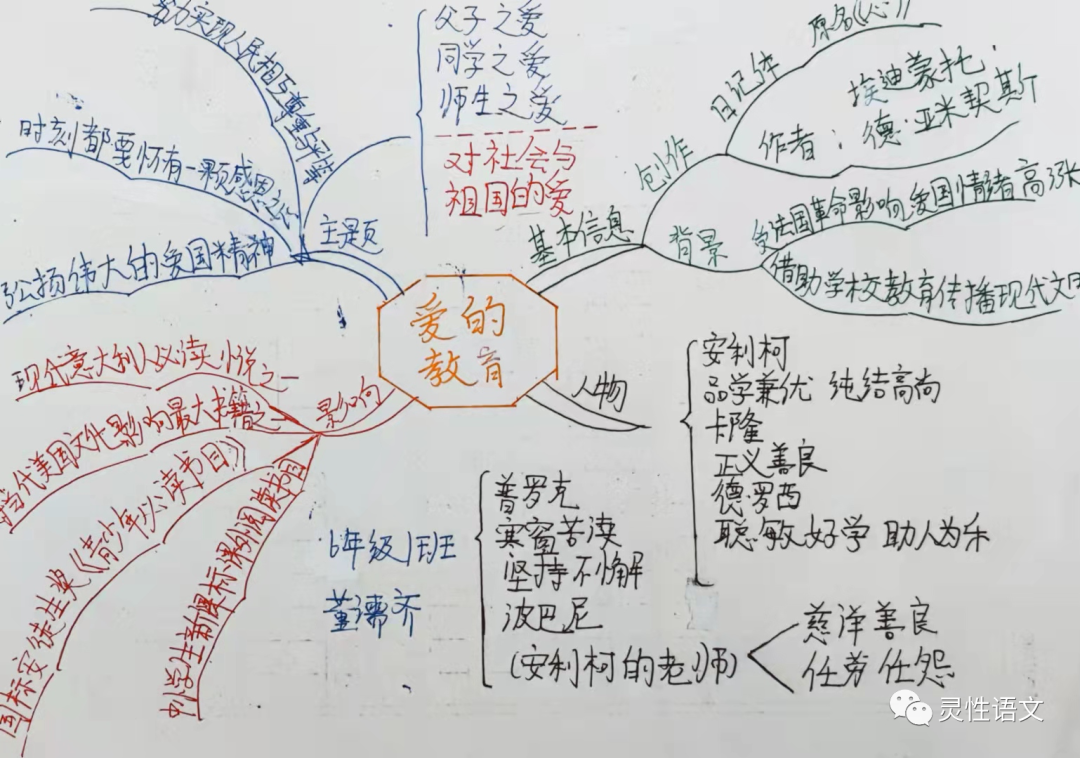 爱的
教育
主题
父子之爱
同学之爱
师生之爱
对社会与
祖国的爱
努力实现人民相互尊重与平等
时刻都要怀有一颗感恩之心
弘扬伟大的爱国精神
基本信息
创作
日记体
原名《心》
作者：埃迪蒙托·
德·亚米契斯
背景
受法国革命影响爱国情绪高涨
借助学校教育传播现代文明
人物
安利柯
品学兼优 纯结高尚
卡隆
正义善良
德·罗西
聪敏好学 助人为乐
普罗克
寒窗苦渎
坚持不懈
波巴尼
(安利柯的老师)
慈洋善良
任劳任怨
影响
现代意大利人必读小说之一
当代美国文化影响最大书籍之一
国标安徒生奖《青少年必读书目》
中小学生新课标课外阅读书目
6年级1班
灵性语文